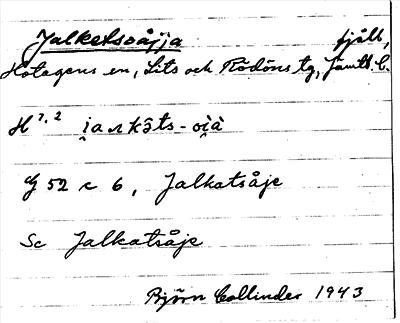 Jalketsoåjja fjäll,
Hotagens sn, Lits och Rödöns tg, Jämtl. l.
H 7, 2
G 52 c 6, Jalkatsåje
Sc Jalkatsåje
Björn Collinder 1943